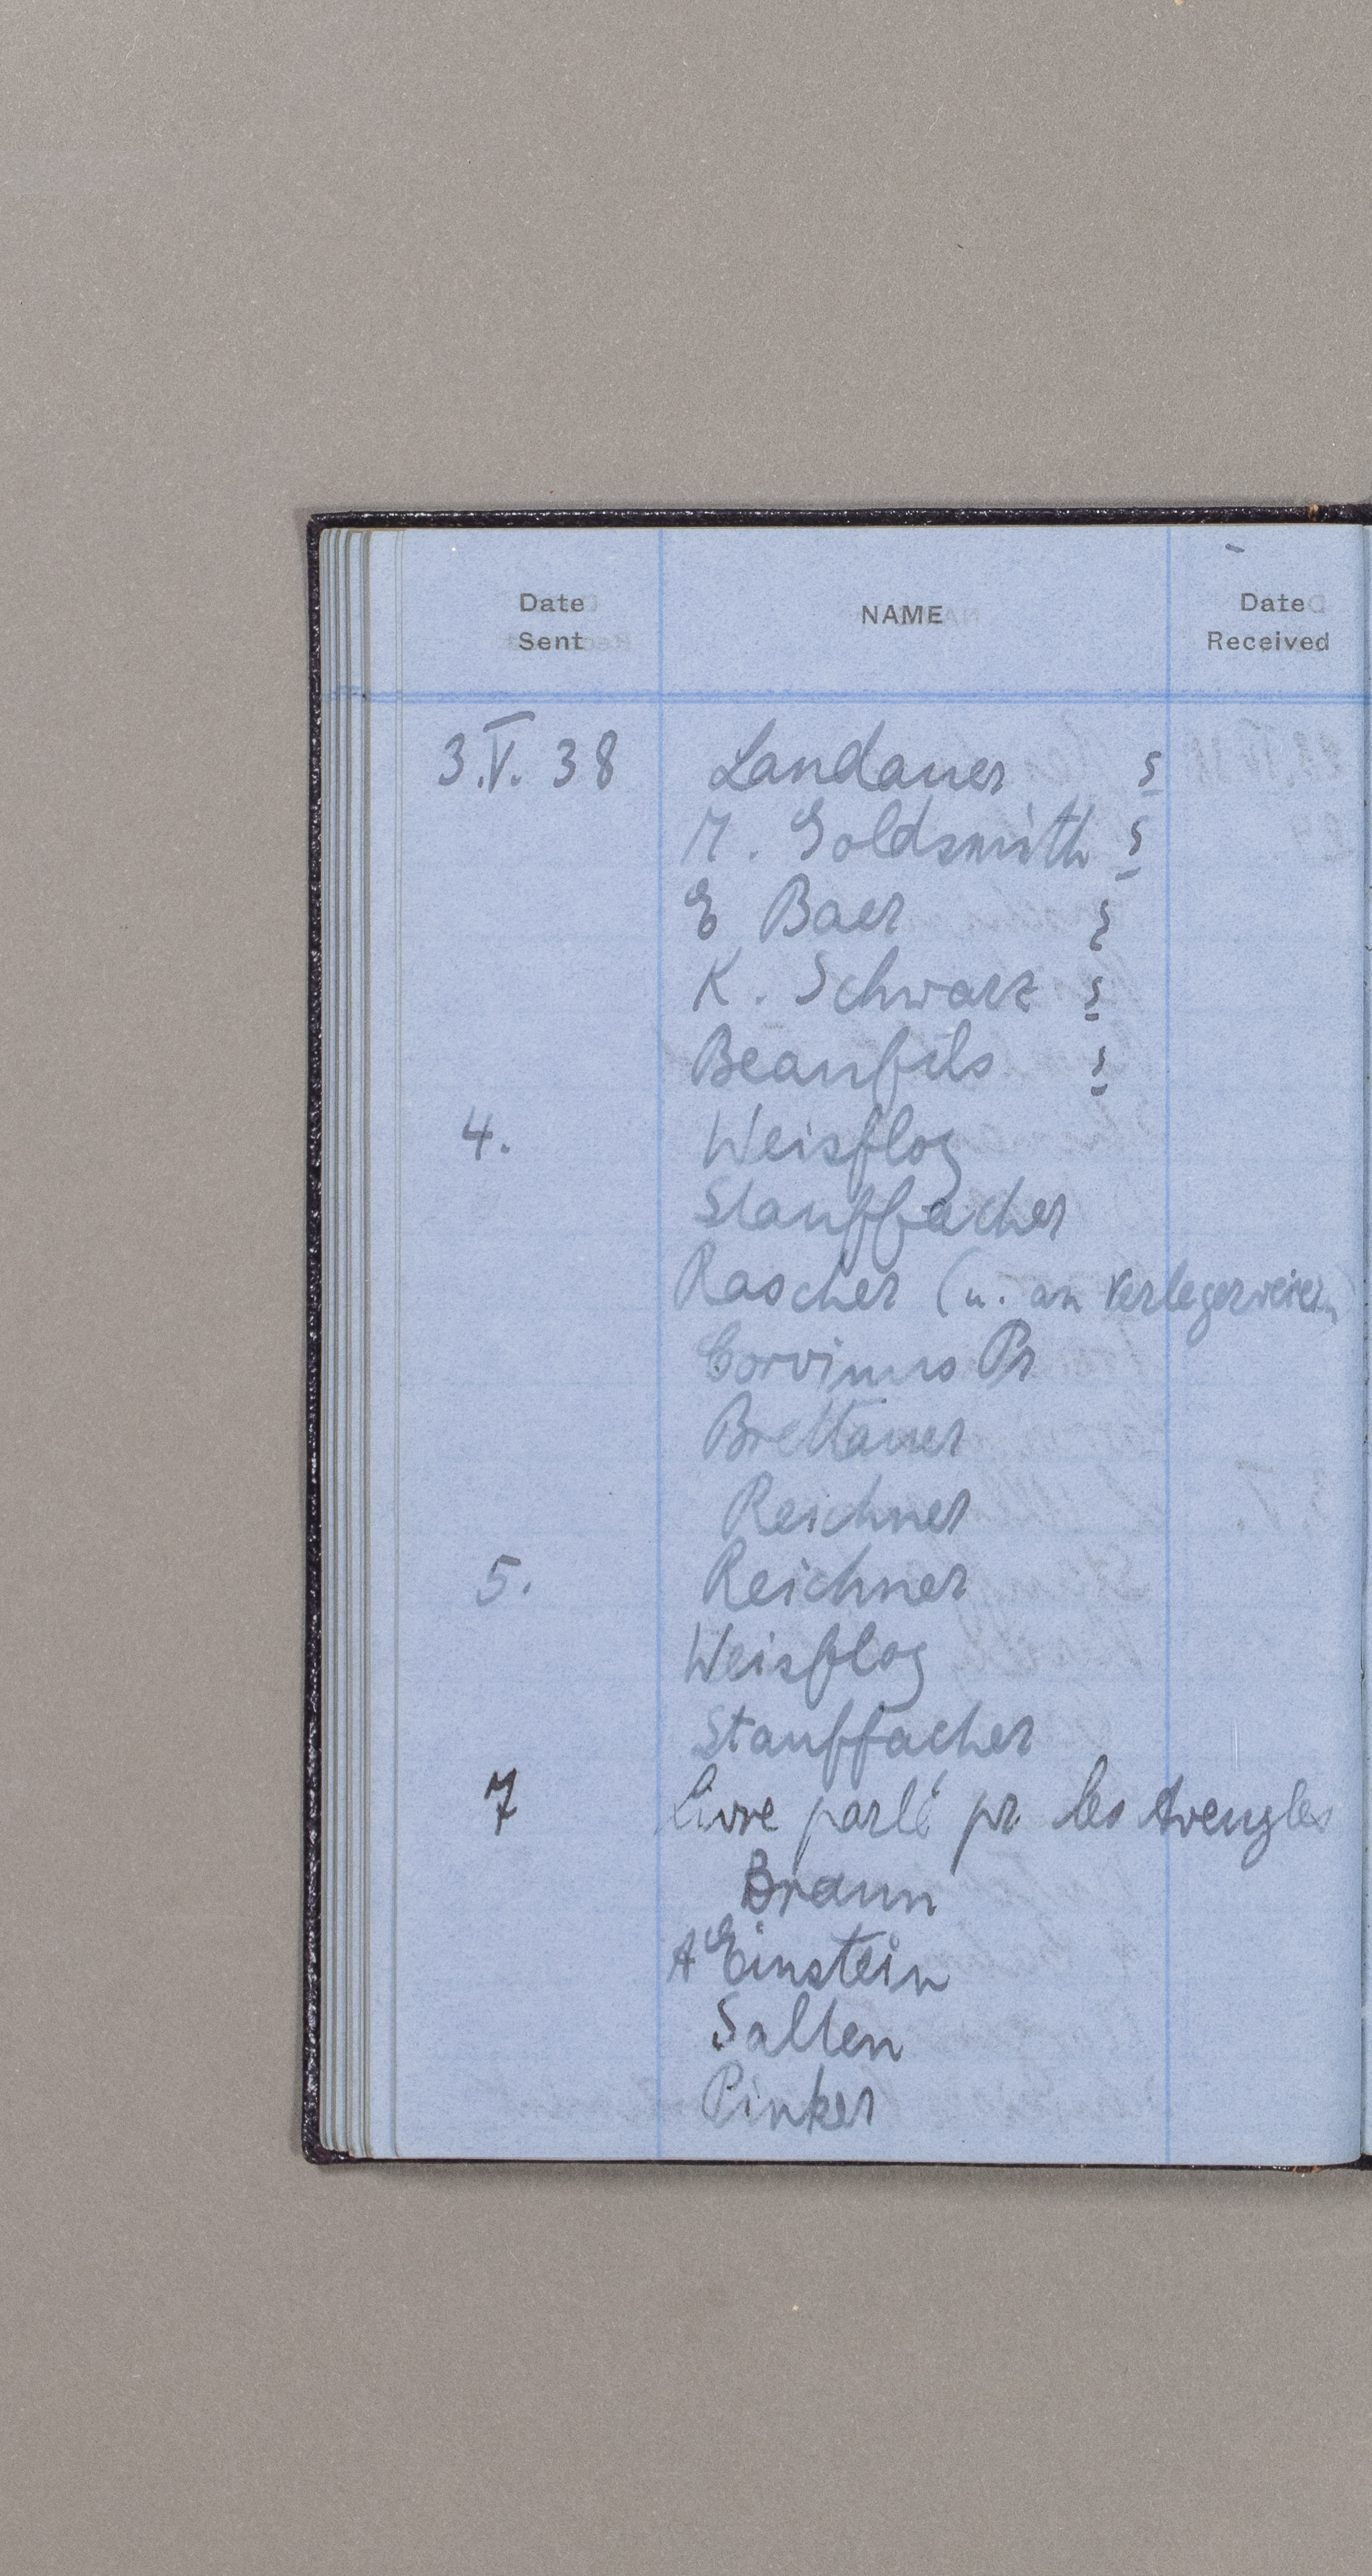 Date Sent NAME Date Received
3.V.38 Landauer s
M. Goldsmith s
E Baer s
K. Schwarz s
Beaufils s
4. Weisflog
Stauffacher
Rascher (u. an Verlegerverein
Corvinus Pr
Brettauer
Reichner
5. Reichner
Weisflog
Stauffacher
7 Livre parlé pr les Aveugles
Braun
A Einstein
Salten
Pinker